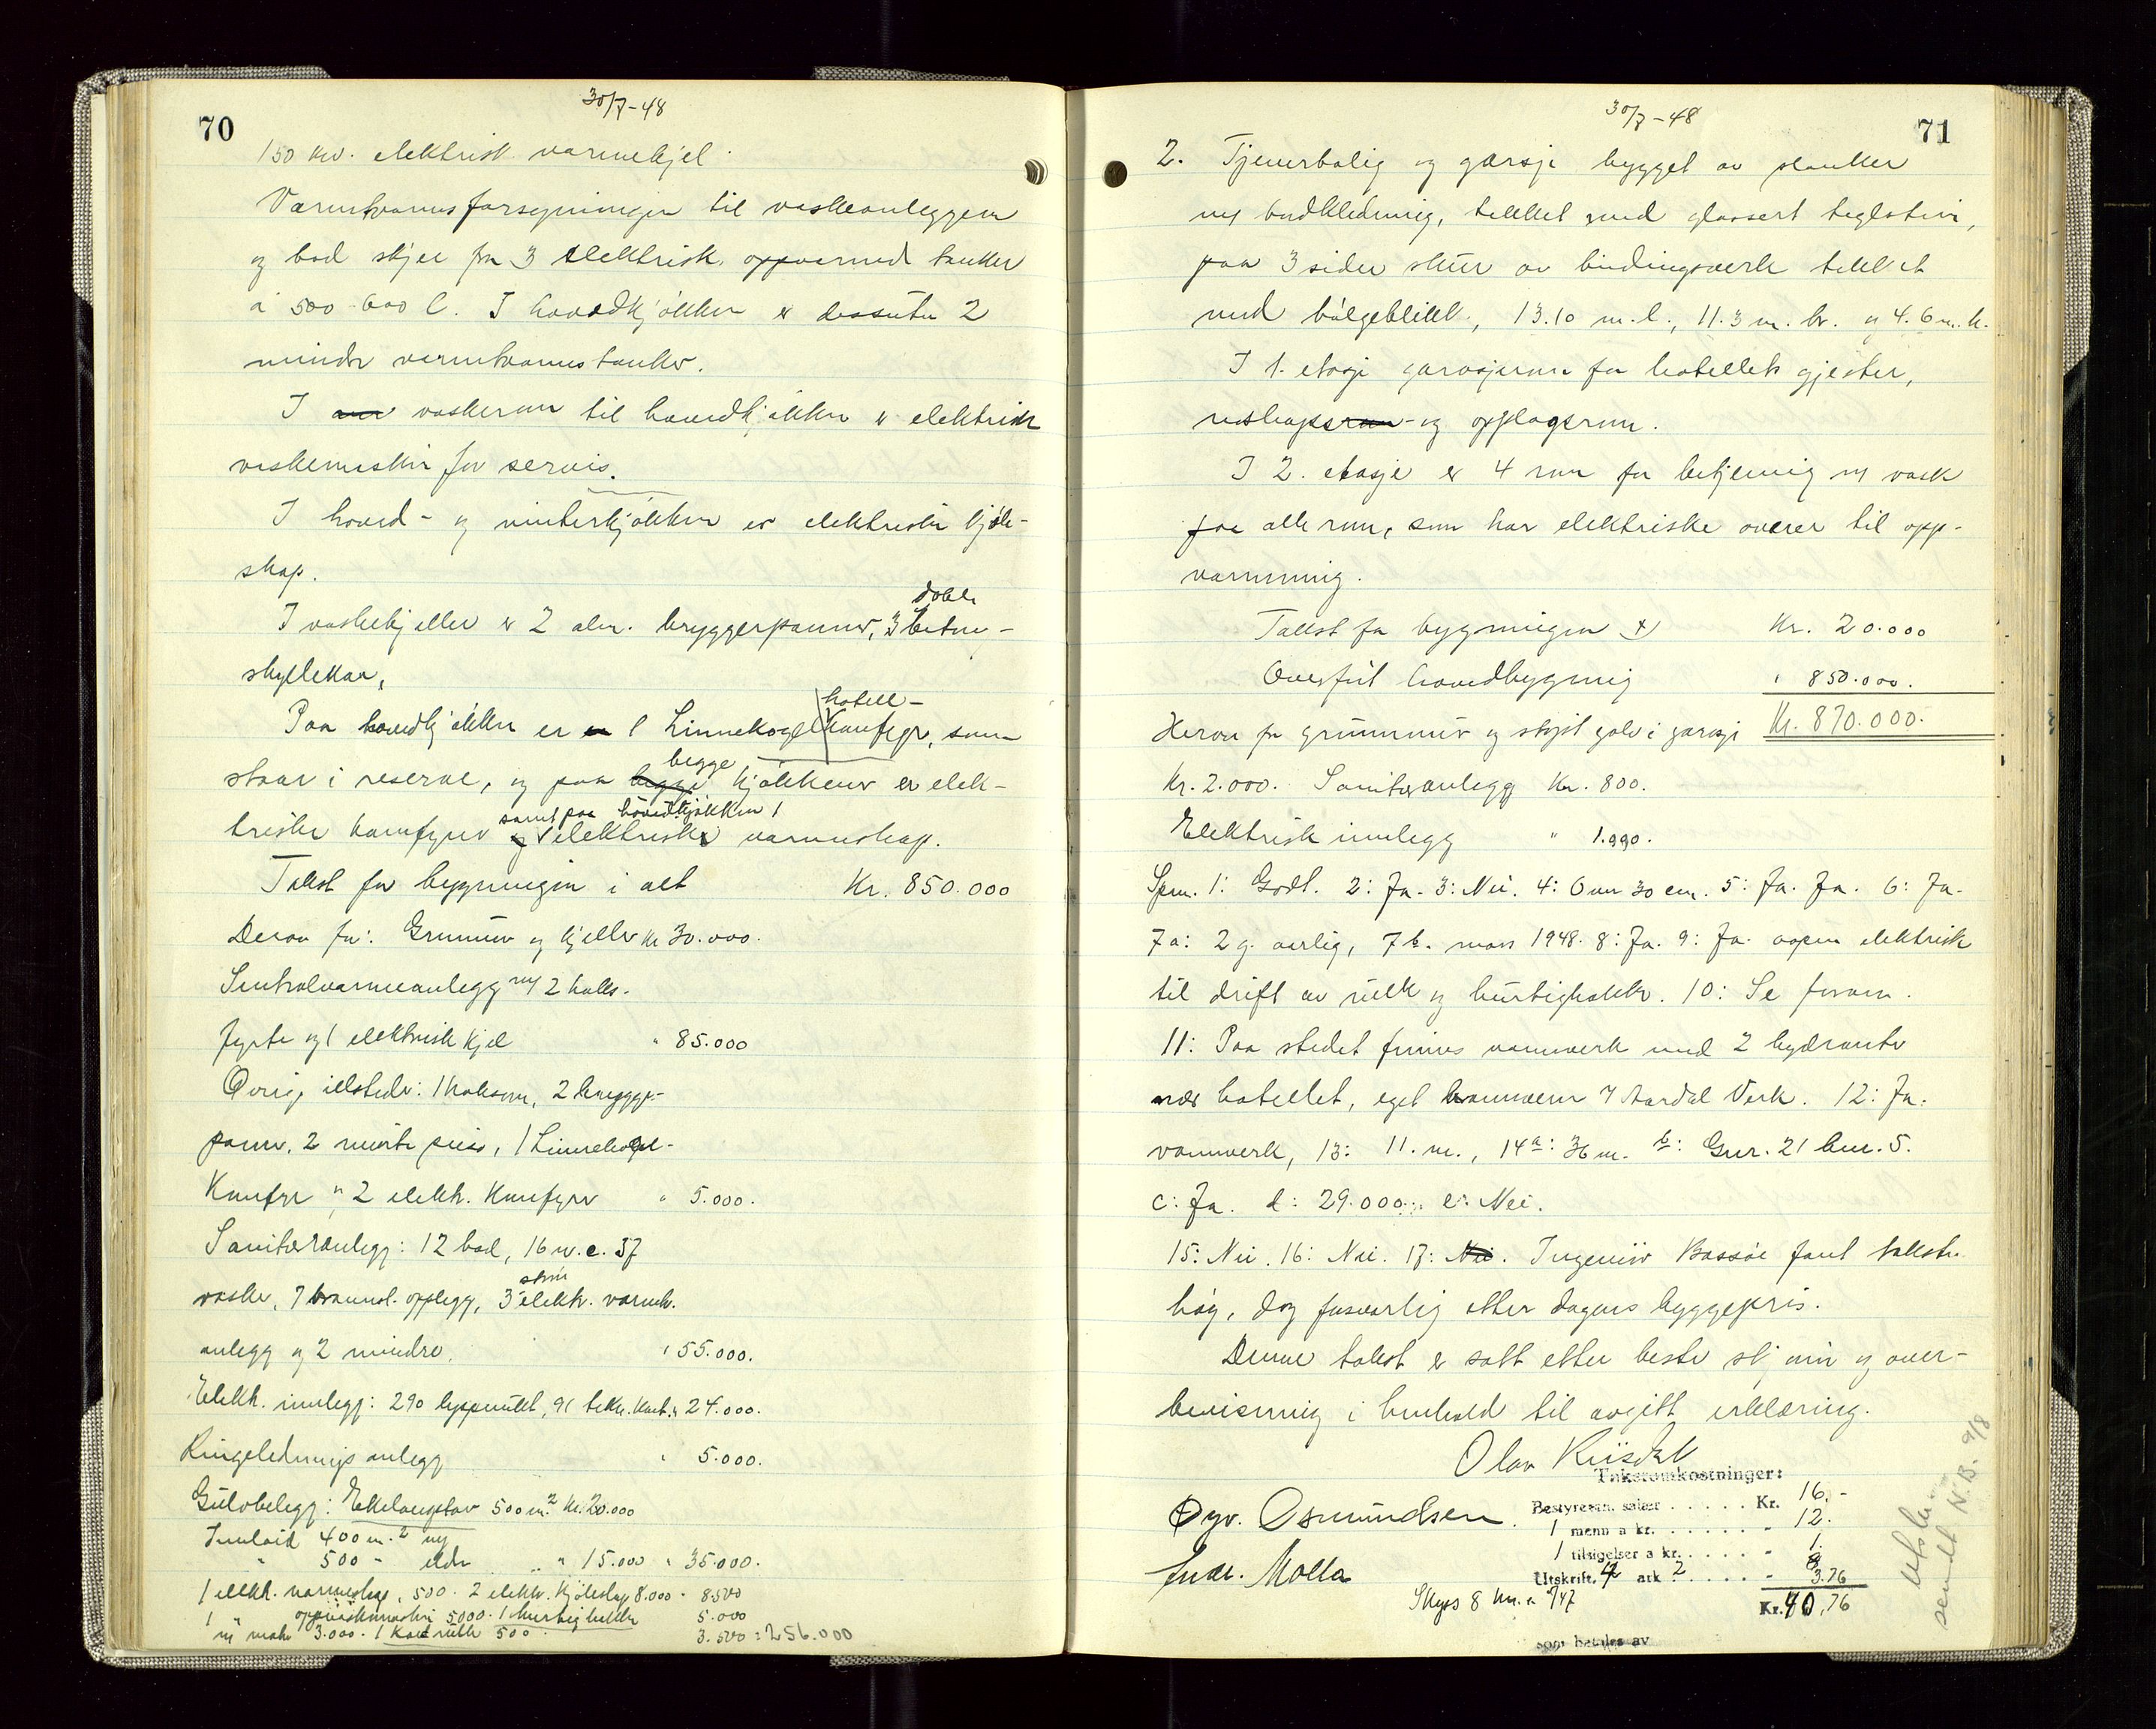 70
30/7-48
150 kw. elektrisk varmekjel.
Varmtvannsforsyningen til vaskeanleggen
og bad skjer fra 3 elektrisk oppvarmed tanker
à 500-600 l. I hovedkjøkken er dessuten 2
mindre varmtvannstanker.
I vaskerum til hovedkjøkken er elektrisk
vaskemaskin for servis.
I hoved- og vinterkjøkken er elektriske kjøle-
skap.
I vaskekjeller er 2 alm. bryggerpanner, 3 doble betong-
skyllekar,
Paa hovedkjøkken er 1 Linnekogel hotell-Komfyr, som
staar i reserve, og paa begge kjøkkener er elek-
triske komfyrer samt paa hovedkjøkken 1 elektrisk varmeskap.
Takst for bygningen i alt Kr. 850.000
Derav for: Grunmur og kjeller kr 30.000.
Sentralvarmeanlegg m/ 2 koks-
fyrte og 1 elektrisk kjel " 85.000
Øvrige ildsteder: 1 kakkom, 2 brygge-
panner, 2 murte peis, 1 Linnekogel-
Komfyr og 2 elektr. Komfyrer " 5.000.
Sanitæranlegg: 12 bad, 16 w.c. 37
vasker, 7 brannsl. opplegg, 3 store elektr. varmtv.
anlegg og 2 mindre. " 55.000.
Elektr. innlegg: 290 lyspunkt, 91 tekn. kont. " 24.000.
Ringelednings anlegg " 5.000.
Gulvbelegg: Ekelangstav 500 m.² Kr. 20.000
Innlaid 400 m.² ny
" 500 - eldre " 15.000 " 35.000.
1 elektr. varmeskap, 500. 2 elektr. kjøleskap 8.000 - 8500
1 " oppvaskmaskin 5000. 1 hurtighakker 5.000
m/ motor 3.000. 1 kald rulle 500 3.500 = 256.000
30/7-48
71
2. Tjenerbolig og garasje bygget av planker
m/ bordkledning, tekket med glassert teglstein,
paa 3 sider skur av bindingsverk tekket
med bølgeblikk, 13.10 m.l., 11.3 m. br. og 4.6 m. h.
I 1. etasje garasjerum for hotellets gjester,
redskaps- og opplagsrum.
I 2. etasje er 4 rum for betjening m/ vask
paa alle rum, som har elektriske ovner til opp-
varmning.
Takst for bygningen Kr. 20.000
Overført hovedbygning " 850.000.
Herav for grunnmur og støpt golv i garasje Kr. 870.000.
Kr. 2.000. Sanitæranlegg Kr. 800.
Elektrisk innlegg " 1.990.
Spm. 1: Godt. 2: Ja. 3: Nei. 4: Over 30 cm. 5: Ja. Ja. 6: Ja.
7a: 2 g. aarlig, 7b. mars 1948. 8: Ja. 9: Ja. aapen elektrisk
til drift av rulle og hurtighakker. 10: Se foran.
11: Paa stedet finnes vannverk med 2 hydranter
nær hotellet, eget brannvern v/ Aardal Verk. 12: Ja.
vannverk, 13: 11. m., 14a: 36 m. b: Gnr. 21 bnr. 5.
c: Ja. d: 29.000. e: Nei.
15: Nei. 16: Nei. 17: Nei. Ingeniør Bassøe fant taksten
høg, dog forsvarlig etter dagens byggepris.
Denne takst er satt etter beste skjønn og over-
bevisning i henhold til avgitt erklæring.
Olav Kiisdal
Øyv. Osmundsen.
Andr. Molla
Takstomkostninger:
Bestyreren. salær . . . . . Kr. 16.-
1 menn a kr. . . . . . . - 12.
1 tilsigelser a kr. . . . . . - 1.
Utskrift, 4 ark 2 . . . . . - 8
Skyss 8 km. à /47 3.76
Kr. 40,76
som betales av
Utskr.
sendt N.B. 9/8